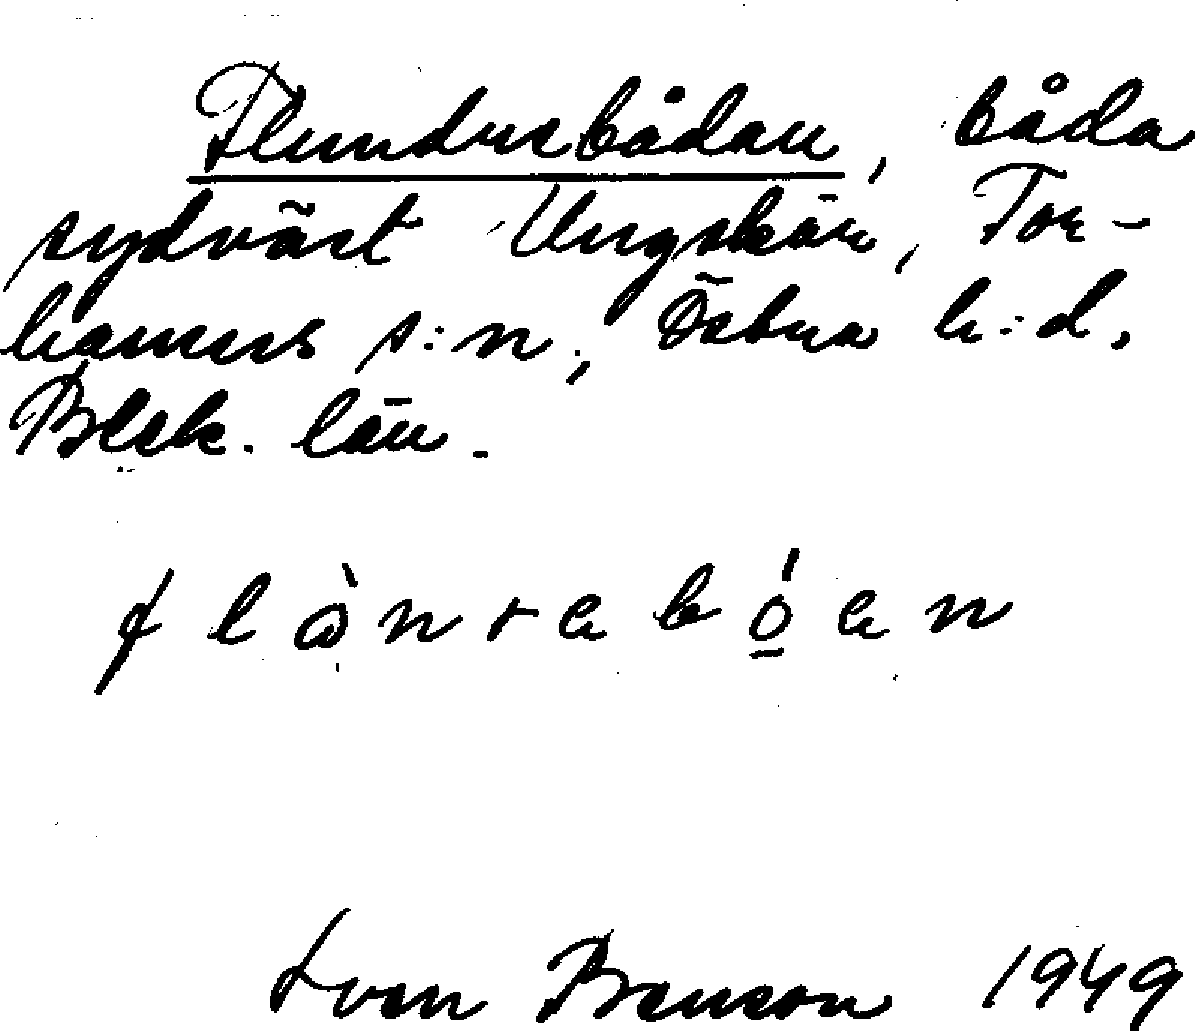 Flundrebådan, båda
sydväst Ungskär, Tor-
hamns s:n, Östra h:d,
Blek. län.
f l ꞷ̀ n r a b ó̲ a n
Sven Benson 1949